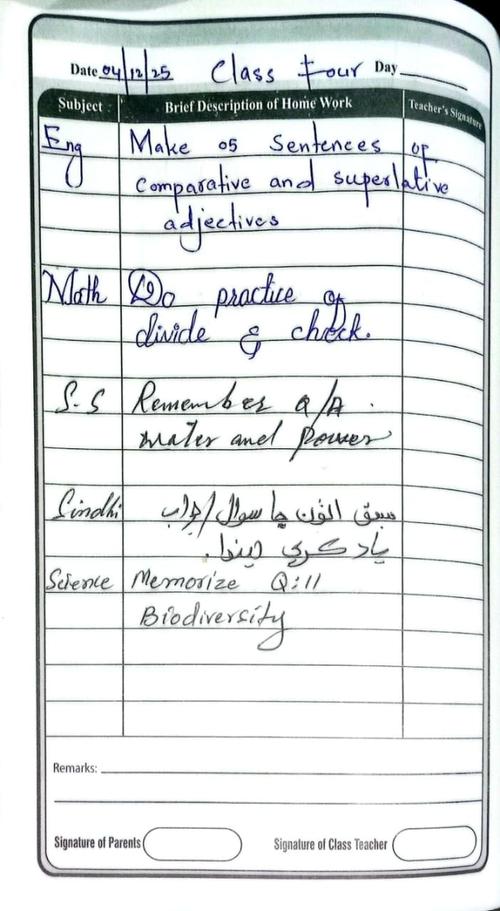 Date 04/12/25 Class Four Day
Subject Brief Description of Home Work Teacher's Signature
Eng Make 05 Sentences of
comparative and superlative
adjectives
Math Do practice of
divide & check.
S.S Remember Q/A.
water and Power
Sindhi سبق الفون جا سوال/جواب
ياد ڪري ايندا.
Science Memorize Q:11
Biodiversity
Remarks:
Signature of Parents Signature of Class Teacher